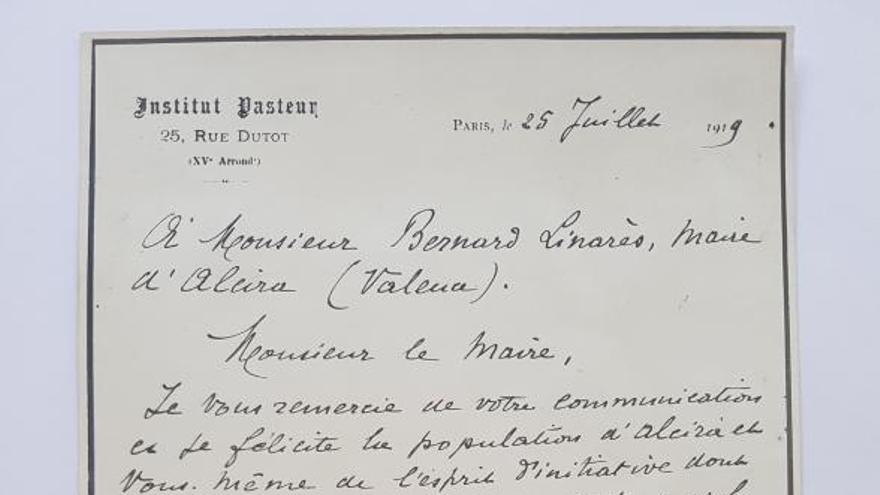 Institut Pasteur
25, RUE DUTOT
(XVe Arrondt)
PARIS, le 25 Juillet 1919.
A Monsieur Bernard Linarès, Maire
d'Alcira (Valencia).
Monsieur le Maire,
Je vous remercie de votre communication
et je félicite la population d'Alcira et
vous-même de l'esprit d'initiative dont